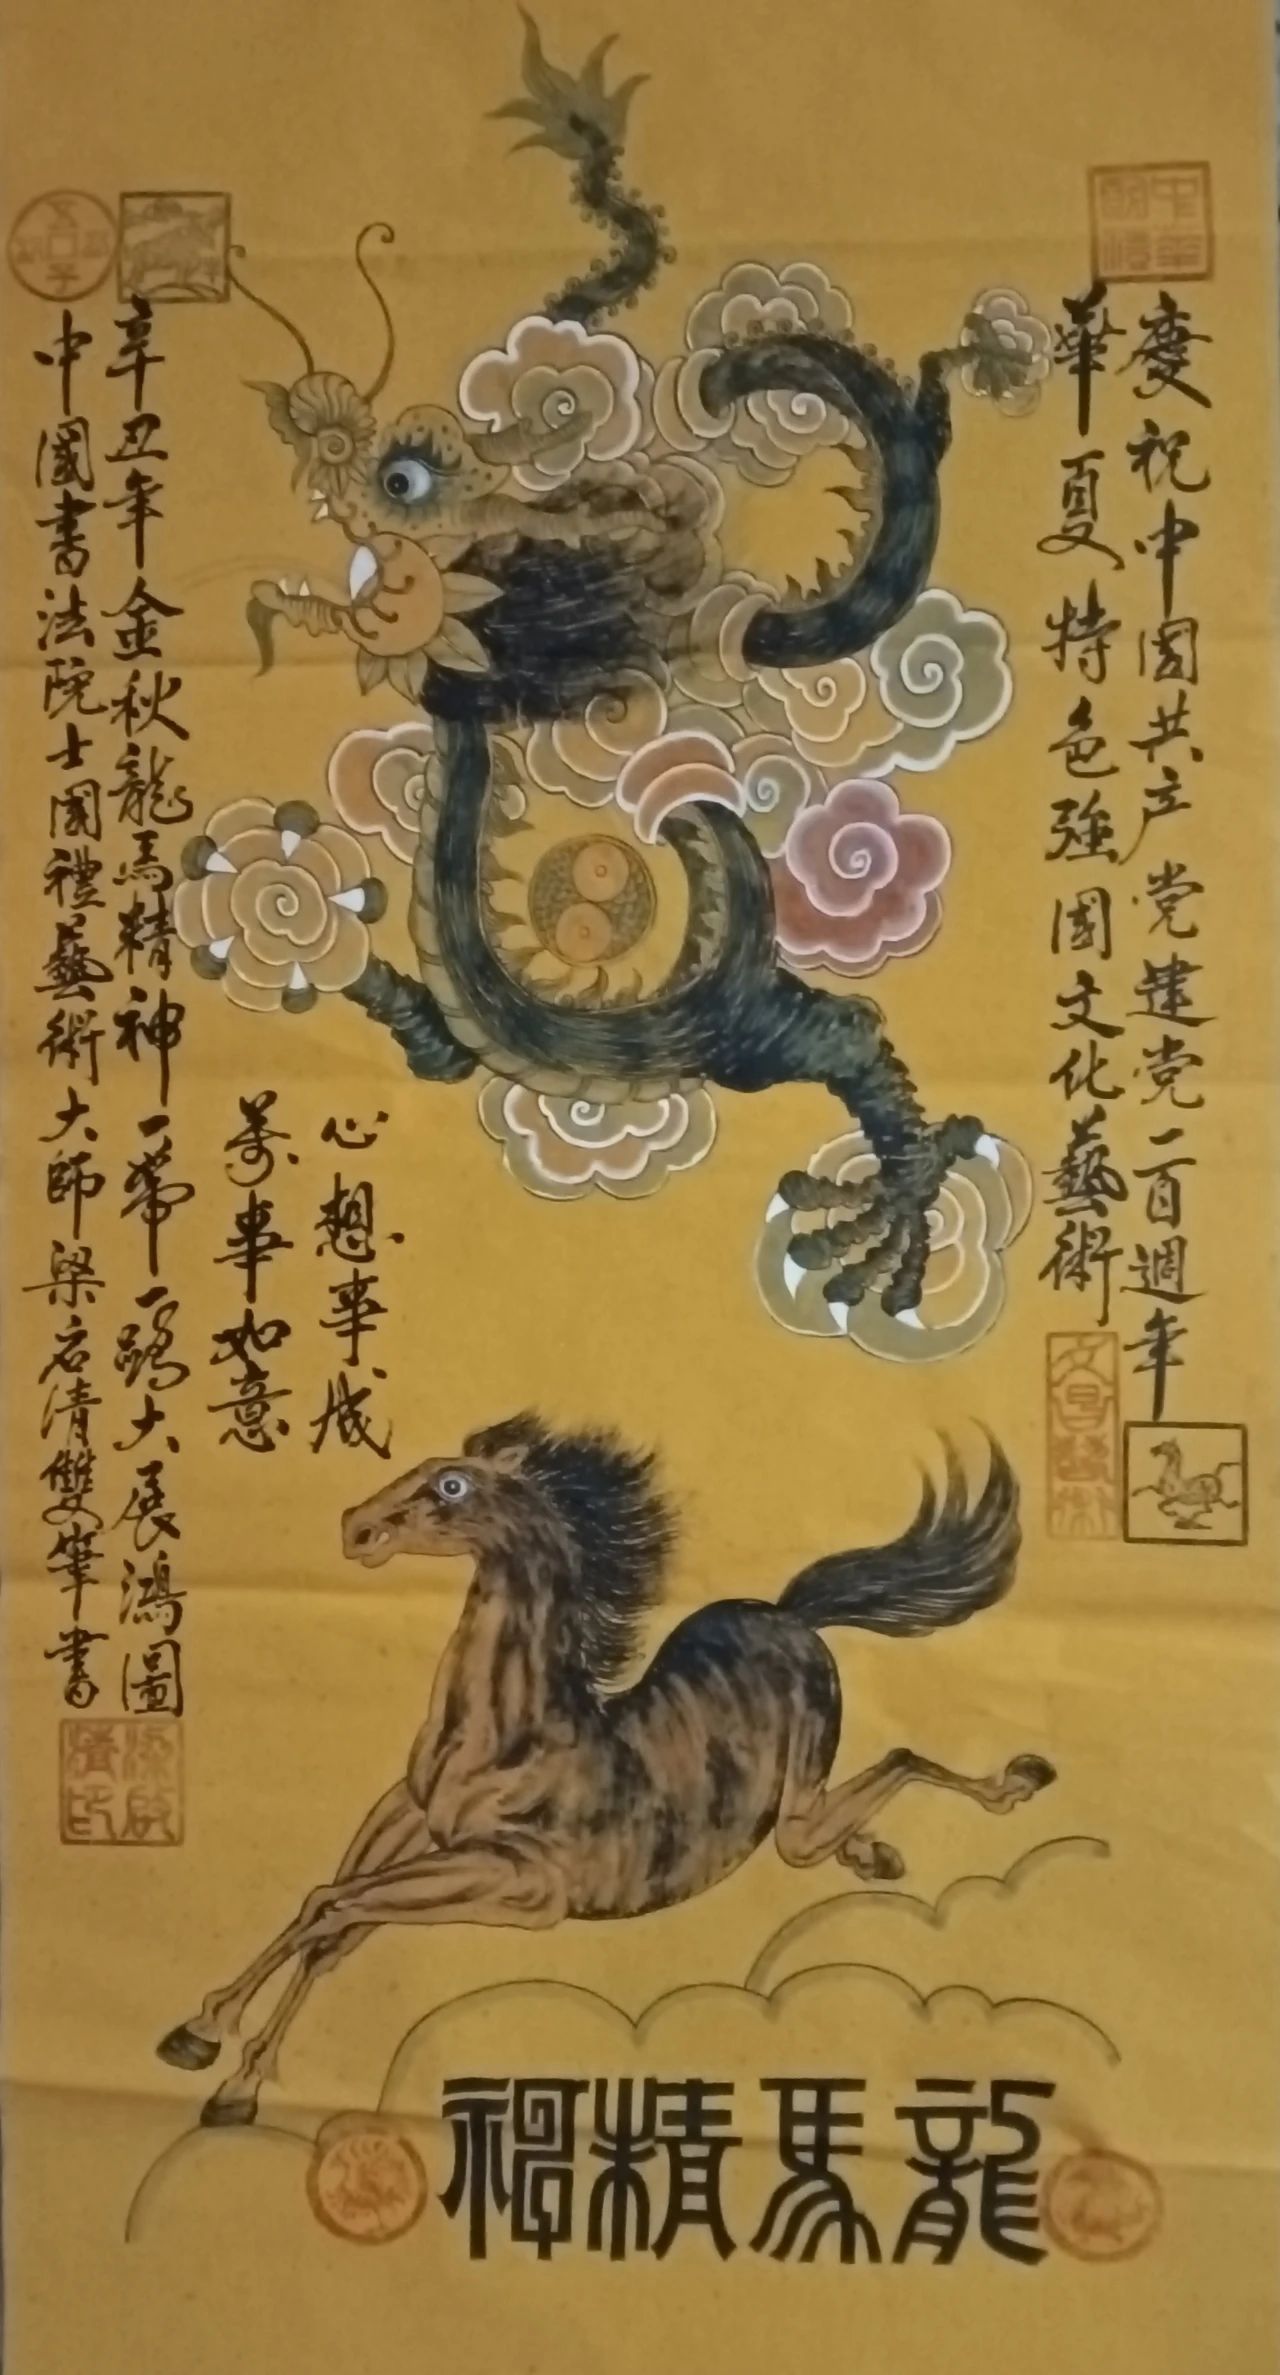 慶祝中国共产党建党一百週年
華夏特色強國文化藝術
心想事成
萬事如意
辛丑年金秋龍馬精神一帶一路大展鴻圖
中國書法院士國禮藝術大師梁启清雙筆書
龍馬精神